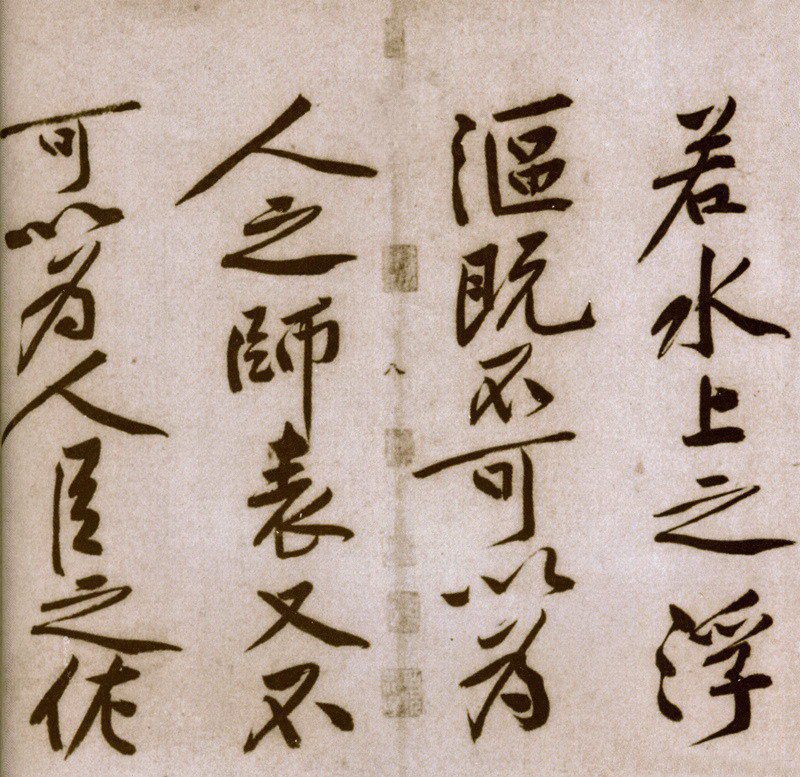 若水上之浮
漚既不可以為
人之師表又不
可以為人臣之佐
八